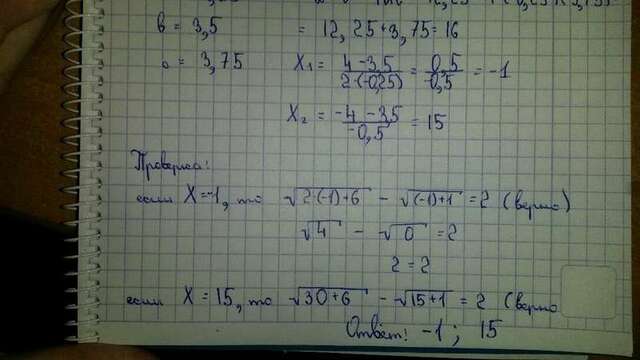 b = 3,5 = 12,25+3,75=16
c = 3,75 X₁ = 4-3,5 / 2·(-0,25) = 0,5 / -0,5 = -1
X₂ = -4-3,5 / -0,5 = 15
Проверка:
если X=-1, то √2·(-1)+6 - √(-1)+1 = 2 (верно)
√4 - √0 = 2
2 = 2
если X = 15, то √30+6 - √15+1 = 2 (верно
Ответ: -1; 15